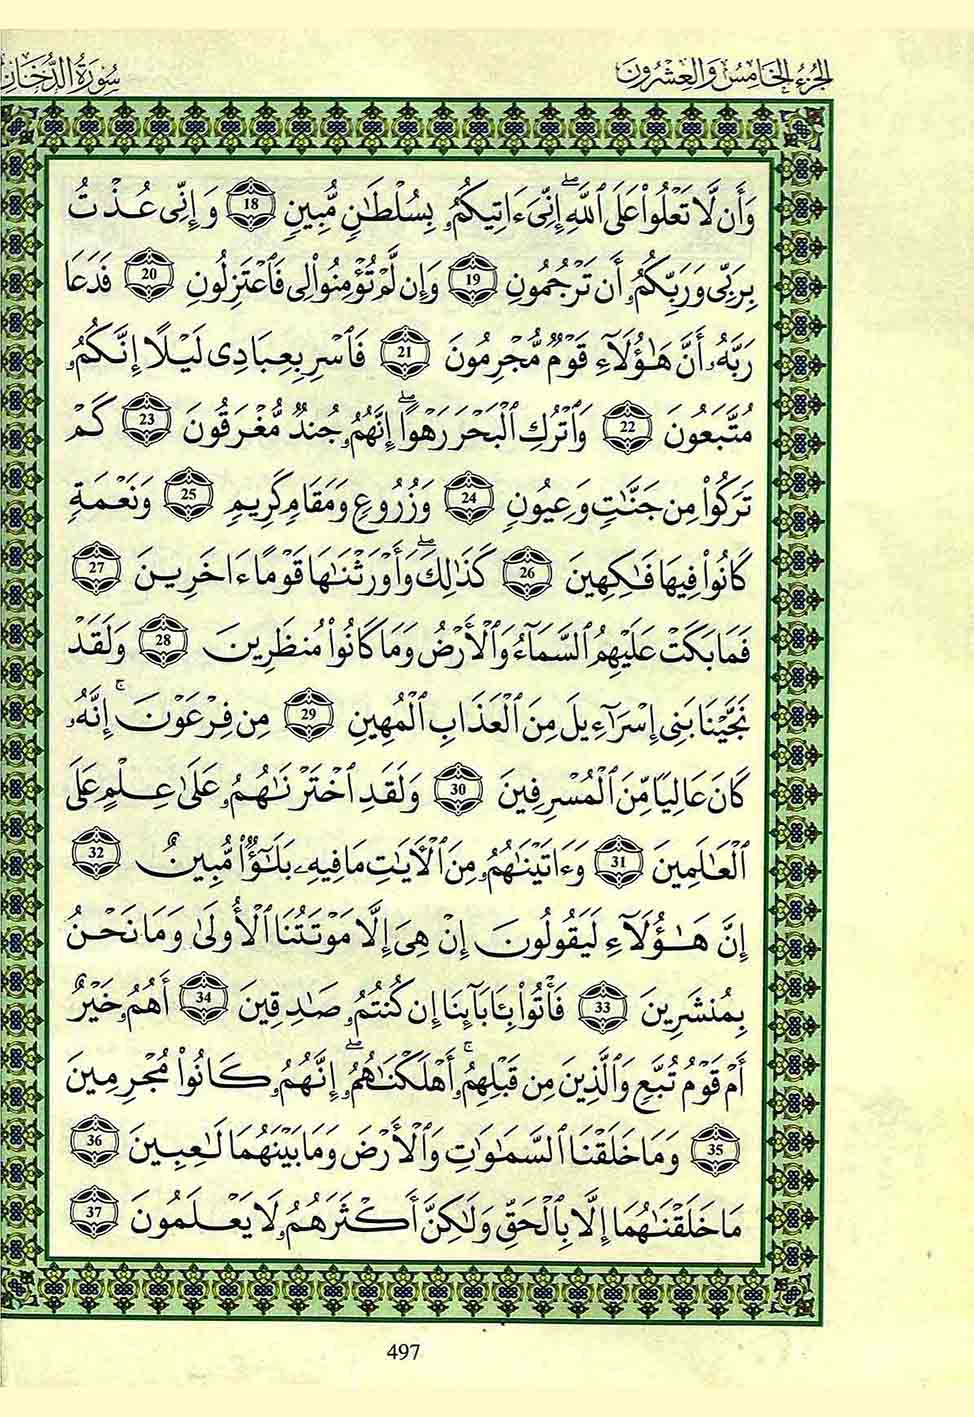 الجزء الخامس والعشرون
سورة الدخان
وَأَن لَّا تَعْلُوا۟ عَلَى ٱللَّهِ ۖ إِنِّىَ ءَاتِيكُمُۥ بِسُلْطَٰنٍ مُّبِينٍ 18 وَإِنِّى عُذْتُ
بِرَبِّى وَرَبِّكُمُۥ أَن تَرْجُمُونِ 19 وَإِن لَّمْ تُؤْمِنُوا۟ لِى فَٱعْتَزِلُونِ 20 فَدَعَا
رَبَّهُۥ أَنَّ هَٰٓؤُلَآءِ قَوْمٌ مُّجْرِمُونَ 21 فَٱسْرِ بِعِبَادِى لَيْلًا إِنَّكُمُۥ
مُتَّبَعُونَ 22 وَٱتْرُكِ ٱلْبَحْرَ رَهْوًا ۖ إِنَّهُمُۥ جُندٌ مُّغْرَقُونَ 23 كَمْ
تَرَكُوا۟ مِن جَنَّٰتٍ وَعِيُونٍ 24 وَزُرُوعٍ وَمَقَامٍ كَرِيمٍ 25 وَنَعْمَةٍ
كَانُوا۟ فِيهَا فَٰكِهِينَ 26 كَذَٰلِكَ ۖ وَأَوْرَثْنَٰهَا قَوْمًا ءَاخَرِينَ 27
فَمَا بَكَتْ عَلَيْهِمُ ٱلسَّمَآءُ وَٱلْأَرْضُ وَمَا كَانُوا۟ مُنظَرِينَ 28 وَلَقَدْ
نَجَّيْنَا بَنِى إِسْرَآءِيلَ مِنَ ٱلْعَذَابِ ٱلْمُهِينِ 29 مِن فِرْعَوْنَ ۚ إِنَّهُۥ
كَانَ عَالِيًا مِّنَ ٱلْمُسْرِفِينَ 30 وَلَقَدِ ٱخْتَرْنَٰهُمُۥ عَلَىٰ عِلْمٍ عَلَى
ٱلْعَٰلَمِينَ 31 وَءَاتَيْنَٰهُمُۥ مِنَ ٱلْأَيَٰتِ مَا فِيهِۦ بَلَٰٓؤٌا۟ مُّبِينٌ 32
إِنَّ هَٰٓؤُلَآءِ لَيَقُولُونَ إِنْ هِىَ إِلَّا مَوْتَتُنَا ٱلْأُولَىٰ وَمَا نَحْنُ
بِمُنشَرِينَ 33 فَأْتُوا۟ بِـَٔابَآئِنَا إِن كُنتُمُۥ صَٰدِقِينَ 34 أَهُمُۥ خَيْرٌ
أَمْ قَوْمُ تُبَّعٍ وَٱلَّذِينَ مِن قَبْلِهِمُۥ ۚ أَهْلَكْنَٰهُمُۥ ۖ إِنَّهُمُۥ كَانُوا۟ مُجْرِمِينَ
35 وَمَا خَلَقْنَا ٱلسَّمَٰوَٰتِ وَٱلْأَرْضَ وَمَا بَيْنَهُمَا لَٰعِبِينَ 36
مَا خَلَقْنَٰهُمَا إِلَّا بِٱلْحَقِّ وَلَٰكِنَّ أَكْثَرَهُمُۥ لَا يَعْلَمُونَ 37
497